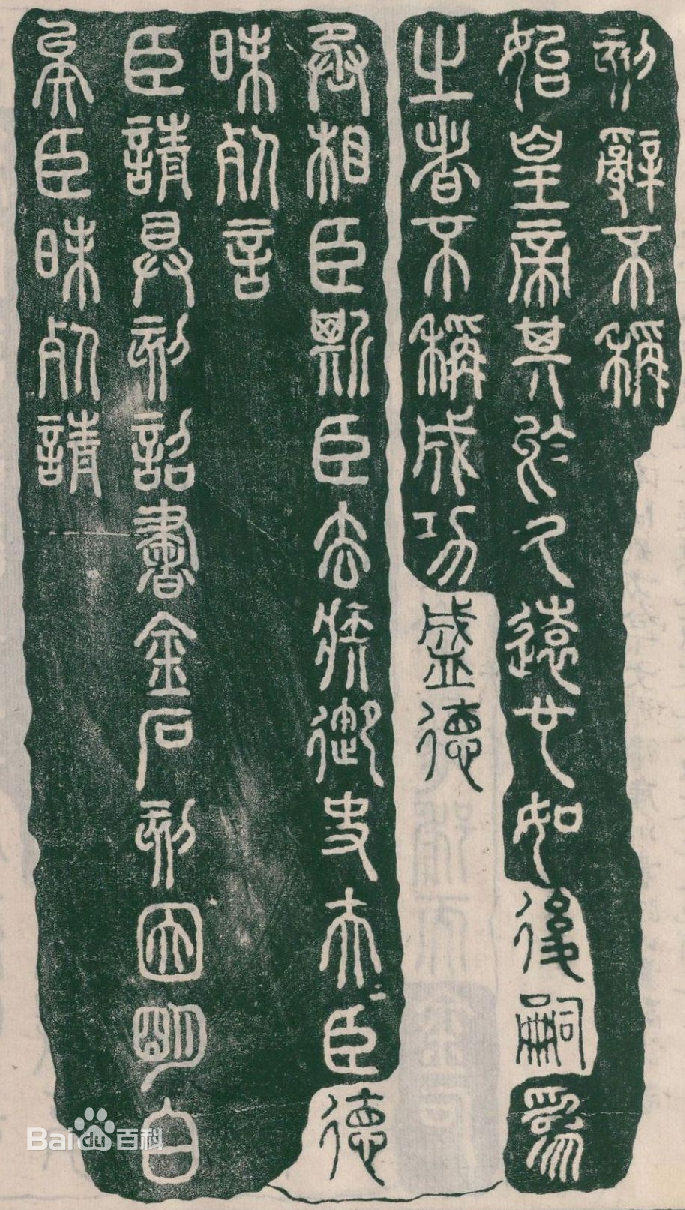 刻辭不稱
始皇帝其於久遠也如後嗣為
之者不稱成功盛德
丞相臣斯臣去疾御史夫=臣德
昧死言
臣請具刻詔書金石刻因明白
矣臣昧死請
Bai du 百科